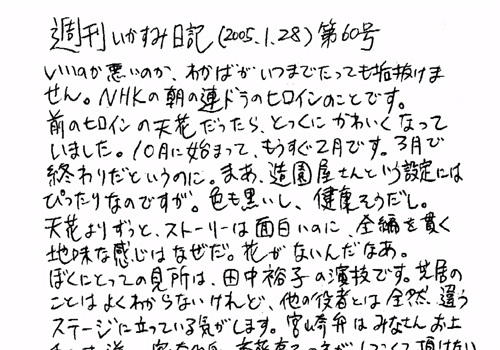 週刊いかすみ日記(2005.1.28)第60号
いıııのが悪いのか、わかばがいつまでたっても垢抜けま
せん。NHKの朝の連ドラのヒロインのことです。
前のヒロインの天花だったら、とっくにかわいくなって
いました。10月に始まって、もうすぐ2月です。3月で
終わりだというのに。まあ、造園屋さんという設定には
ぴったりなのですが。色も黒いし、健康そうだし。
天花よりずっと、ストーリーは面白いのに、全編を貫く
地味な感じはなぜだ。花がないんだなあ。
ぼくにとっての見所は、田中裕子の演技です。芝居の
ことはよくわからないけれど、他の役者とは全然違う
ステージに立っている気がします。宮崎弁はみなさんお上